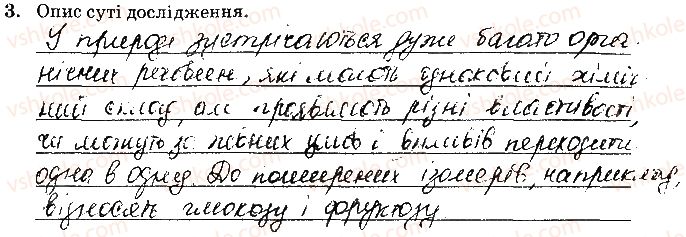 3. Опис суті дослідження.
У природі зустрічаються дуже багато орга
нічних речовин, які мають однаковий хіміч
ний склад, але проявляють різні властивості,
чи можуть за певних умов і впливів переходити
одна в одну. До поширених ізомерів, наприклад,
відносять глюкозу і фруктозу